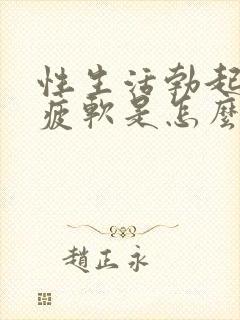 性生活勃起
疲軟是怎麼
趙正永